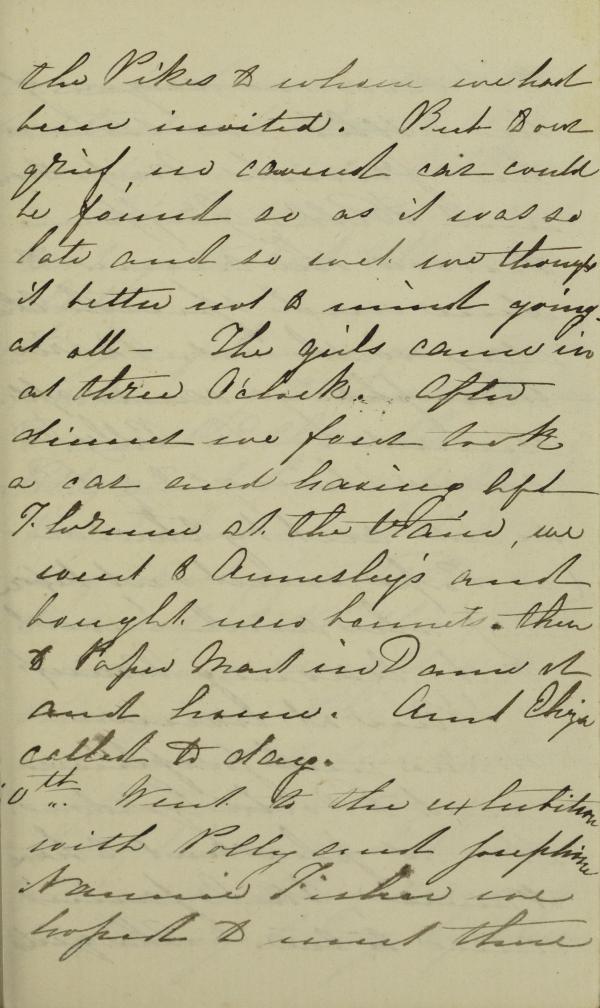 the Pikes to whom we had
been invited. But to our
grief no covered car could
be found so as it was so
late and so wet we thought
it better not to mind going
at all — The girls came in
at three O'clock. After
dinner we four took
a car and having left
Florence at the train, we
went to Annesley's and
bought new bonnets. then
to Paper Mart in Dame st
and home. Aunt Eliza
called to day.
0th. Went to the exhibition
with Polly and Josephine
Nannie Fisher we
hoped to meet there